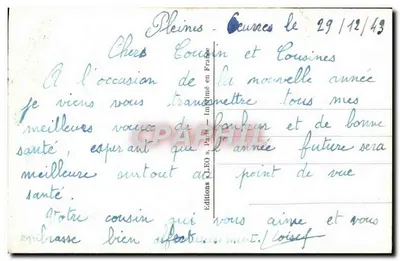 Pleines - Oeuvres le 29/12/43
Chers Cousin et Cousines
A l'occasion de la nouvelle année
je viens vous transmettre tous mes
meilleurs vœux de bonheur et de bonne
santé, esperant que l'année future sera
meilleure surtout au point de vue
santé.
Votre cousin qui vous aime et vous
embrasse bien affectueusement.
Editions "LEO", Paris — Imprimé en France
CPAPHIL.COM